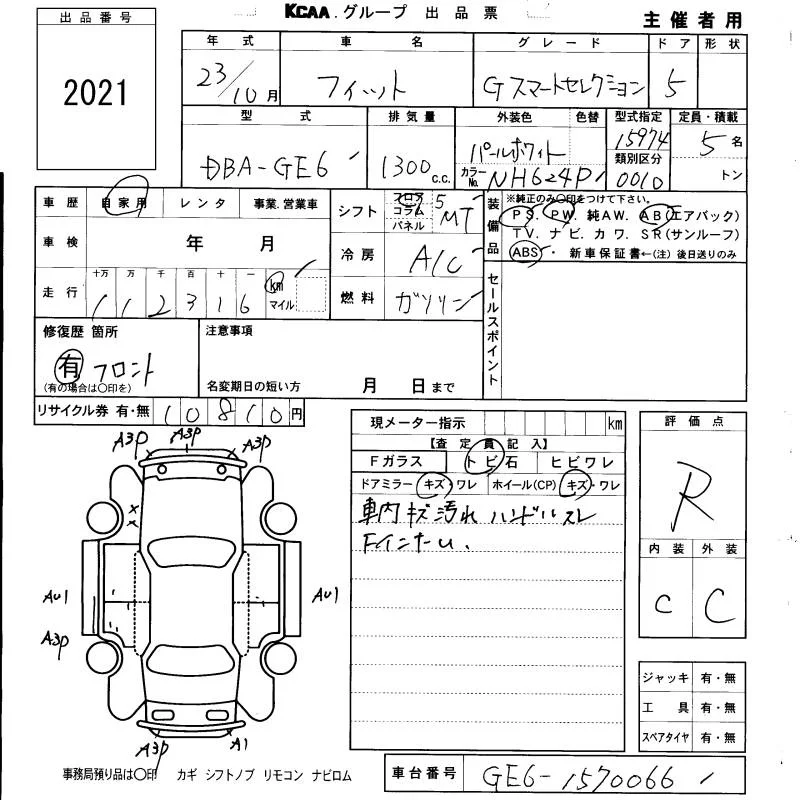 KCAA.グループ 出品票
主催者用
出品番号
2021
年式 車名 グレード ドア 形状
23/10月 フィット G スマートセレクション 5
型式 排気量 外装色 色替 型式指定 定員・積載
DBA-GE6 1300 c.c. パールホワイト 15974 5名
カラーNo. NH624P 類別区分 0010 トン
車歴 自家用 レンタ 事業.営業車
シフト フロア コラム パネル 5 MT
装備品 ※純正のみ〇印をつけて下さい。
PS. PW. 純AW. AB(エアバック)
TV. ナビ. カワ. SR(サンルーフ)
ABS・ 新車保証書←(注)後日送りのみ
車検 年 月
冷房 A/C
走行 十万 万 千 百 十 一 km マイル
1 1 2 3 1 6
燃料 ガソリン
セールスポイント
修復歴 箇所 注意事項
有 フロント
(有の場合は〇印を) 名変期日の短い方 月 日まで
リサイクル券 有・無 10810円
現メーター指示 km
【査定員記入】
Fガラス トビ石 ヒビワレ
ドアミラー キズ・ワレ ホイール(CP) キズ・ワレ
車内キズ汚れ ハンドルスレ
評価点
R
内装 外装
C C
A3P A3P A3P
AU1 AU1
A3P
A3P A1
ジャッキ 有・無
工具 有・無
スペアタイヤ 有・無
事務局預り品は〇印 カギ シフトノブ リモコン ナビロム
車台番号 GE6-1570066